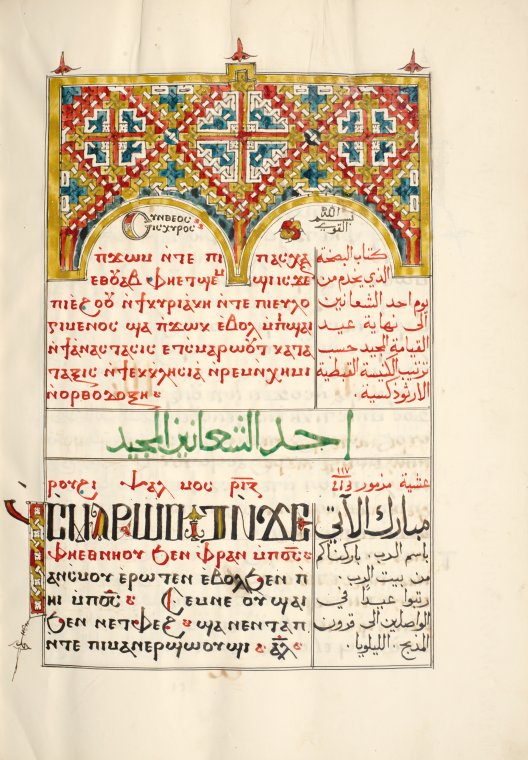 Ⲥⲩⲛⲑⲉⲟⲥ
ⲓⲥⲭⲩⲣⲟⲥ
بسم الله
القوي
ⲡϫⲱⲙ ⲛⲧⲉ ⲡⲓ ⲡⲁⲥⲭⲁ
ⲉⲑⲟⲩⲁⲃ ⲫⲏⲉⲧϣⲉⲙϣⲓ ⲓⲥϫⲉ
ⲡⲓⲉϩⲟⲟⲩ ⲛϯⲕⲩⲣⲓⲁⲕⲏ ⲛⲧⲉ ⲡⲓⲉⲩⲗⲟ
ⲅⲓⲙⲉⲛⲟⲥ ϣⲁ ⲡϫⲱⲕ ⲉⲃⲟⲗ ⲙⲡϣⲁⲓ
ⲛϯⲁⲛⲁⲥⲧⲁⲥⲓⲥ ⲉⲧⲥⲙⲁⲣⲱⲟⲩⲧ ⲕⲁⲧⲁ
ⲧⲁⲝⲓⲥ ⲛϯⲉⲕⲕⲗⲏⲥⲓⲁ ⲛⲣⲉⲙⲛⲭⲏⲙⲓ
ⲛⲟⲣⲑⲟⲇⲟⲝⲏ
كتاب البصخة
الذي يخدم من
يوم احد الشعانين
الى نهاية عيد
القيامة المجيد حسب
ترتيب الكنيسة القبطية
الارثوذكسية .
احد الشعانين المجيد
ⲣⲟⲩϩⲓ ⲯⲁⲗⲙⲟⲥ ⲣⲓⲍ
Ϥⲥⲙⲁⲣⲱⲟⲩⲧ ⲛϫⲉ
ⲫⲏⲉⲑⲛⲏⲟⲩ ϧⲉⲛ ⲫⲣⲁⲛ ⲙⲡⲟ̅ⲥ̅
ⲁⲛⲥⲙⲟⲩ ⲉⲣⲱⲧⲉⲛ ⲉⲃⲟⲗϧⲉⲛ ⲡ
ⲏⲓ ⲙⲡⲟ̅ⲥ̅ Ⲥⲉⲙⲛⲉ ⲟⲩϣⲁⲓ
ϧⲉⲛ ⲛⲉⲧⲫⲉϩ ϣⲁ ⲛⲉⲛⲧⲁⲡ
ⲛⲧⲉ ⲡⲓⲙⲁⲛⲉⲣϣⲱⲟⲩϣⲓ ⲁ̅ⲗ̅
عشية مزمور ١١٧
مبارك الآتي
باسم الرب . باركناكم
من بيت الرب .
رتبوا عيدًا في
الواصلين الى قرون
المذبح . الليلويا .